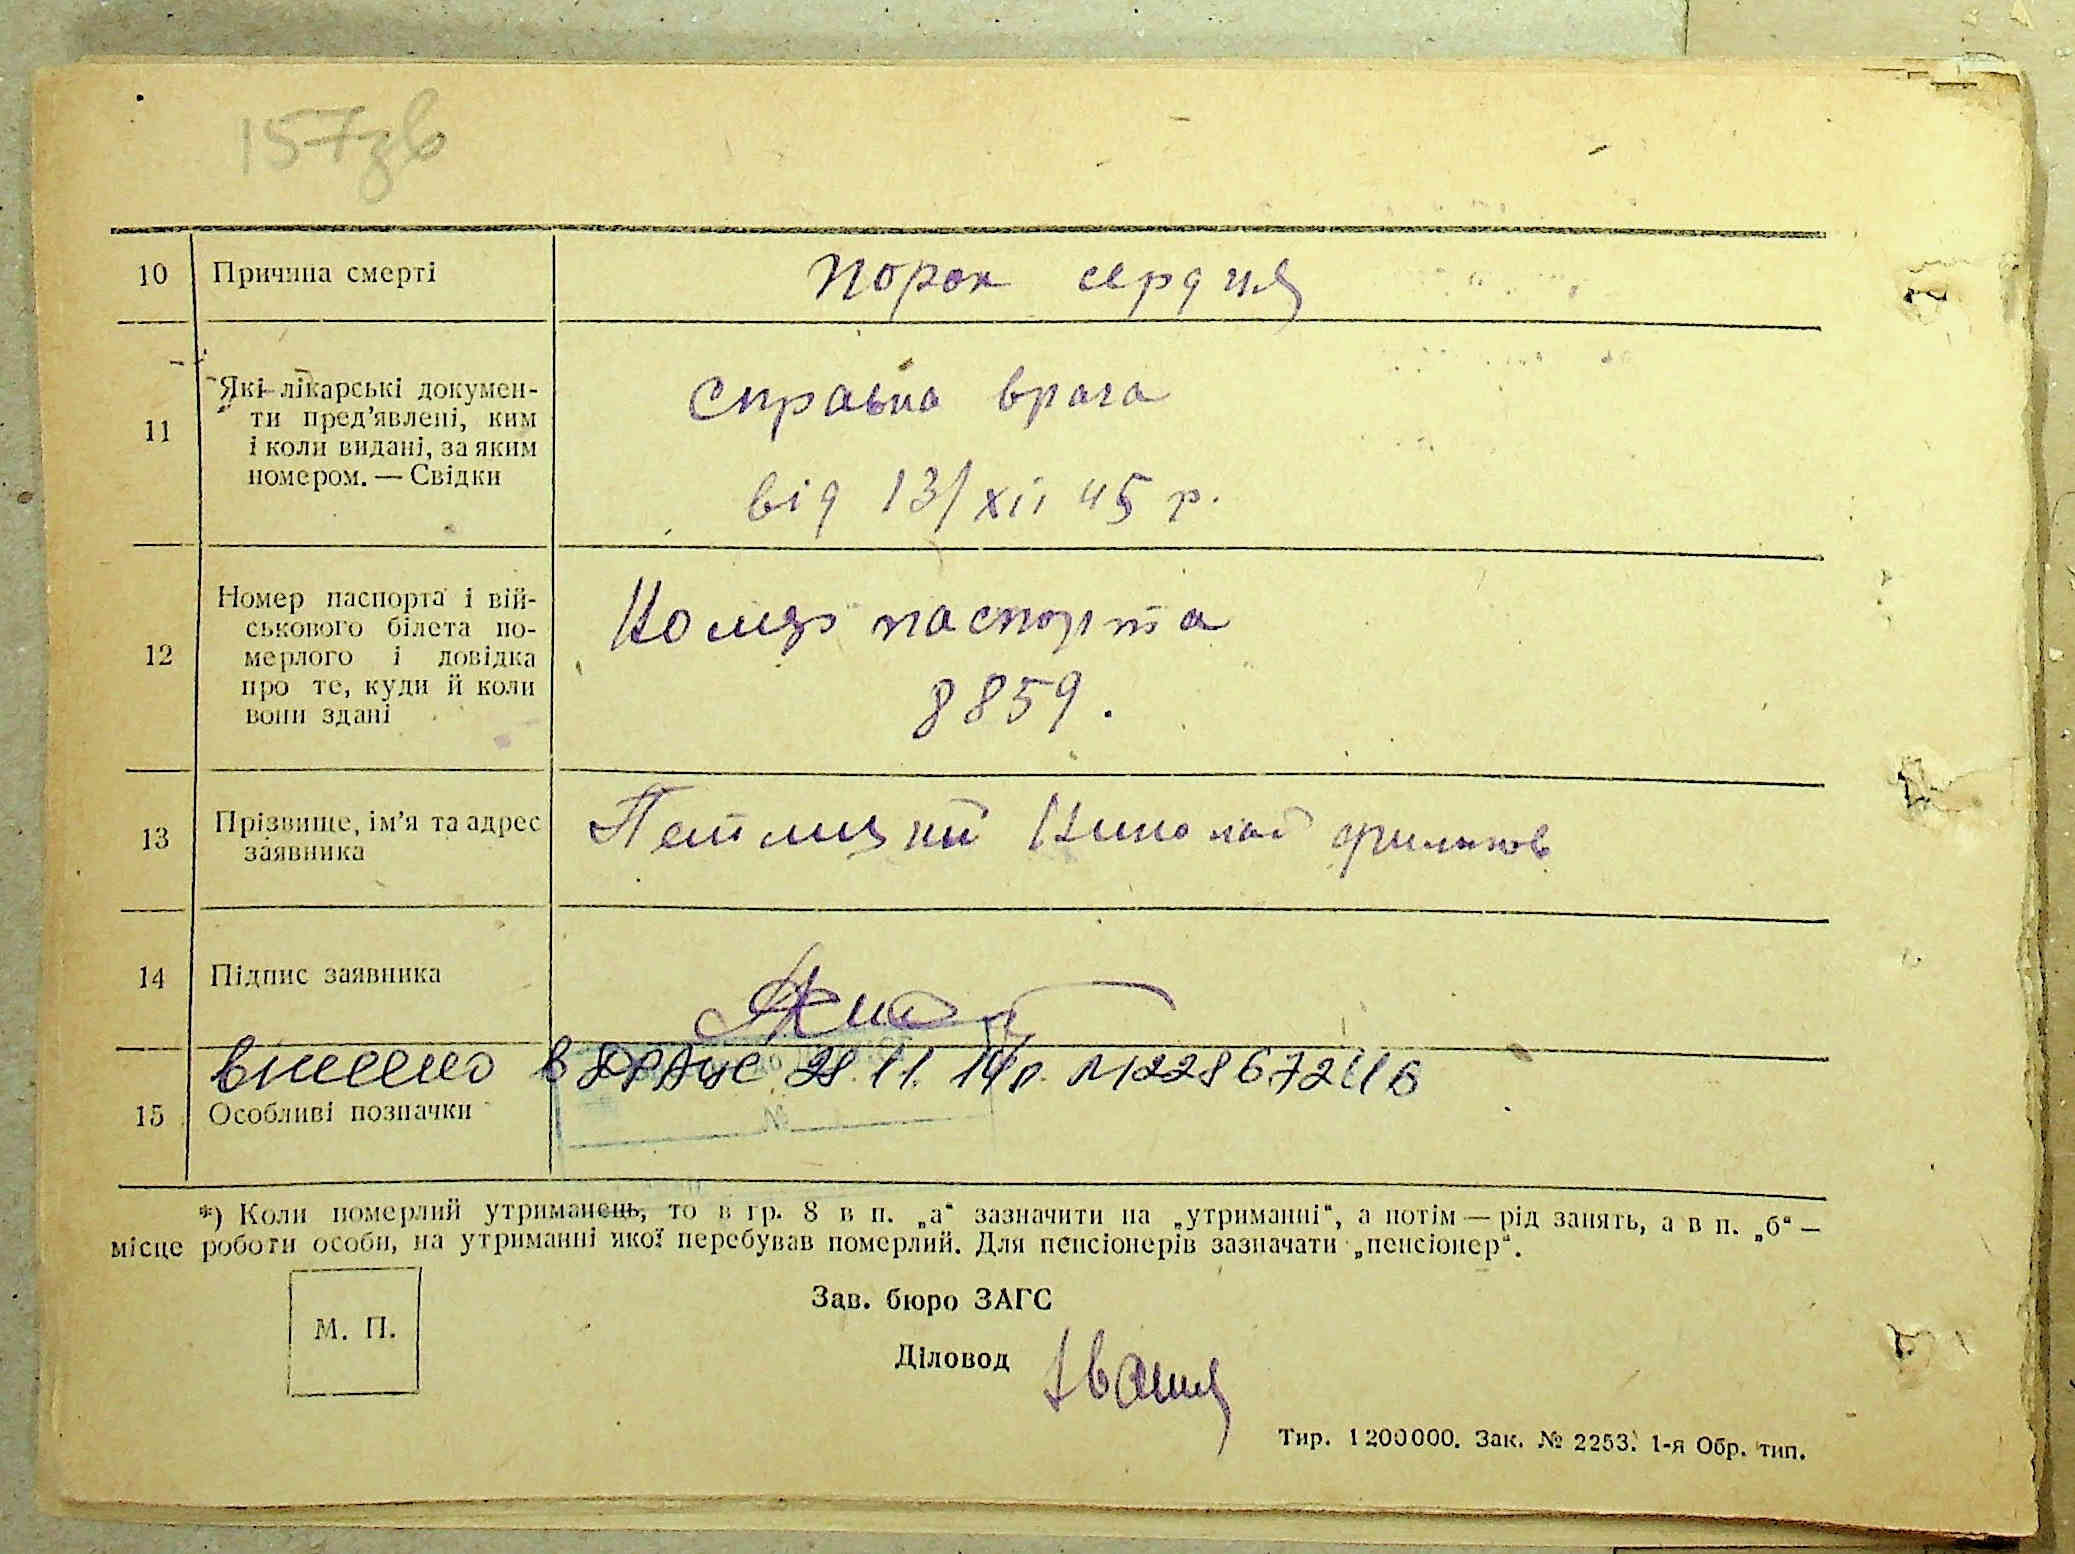 157зв
10 Причина смерті порок сердця
11 Які лікарські докумен-
ти пред'явлені, ким
і коли видані, за яким
номером. — Свідки
справка врача
від 13/XII 45 р.
12 Номер паспорта і вій-
ськового білета по-
мерлого і довідка
про те, куди й коли
вони здані
Номер паспорта
8859.
13 Прізвище, ім'я та адрес
заявника
Николай
14 Підпис заявника
внесено в ДРАЦС 28.11.14р.
15 Особливі позначки
№
*) Коли померлий утриманець, то в гр. 8 в п. „а“ зазначити на „утриманні“, а потім — рід занять, а в п. „б“ —
місце роботи особи, на утриманні якої перебував померлий. Для пенсіонерів зазначати „пенсіонер“.
М. П.
Зав. бюро ЗАГС
Діловод
Тир. 1 200 000. Зак. № 2253. 1-я Обр. тип.